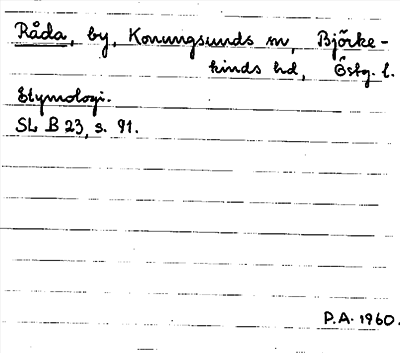 Råda, by, Konungsunds sn, Björke-
kinds hd, Östg. l.
Etymologi.
SL B 23, s. 91.
P.A. 1960.